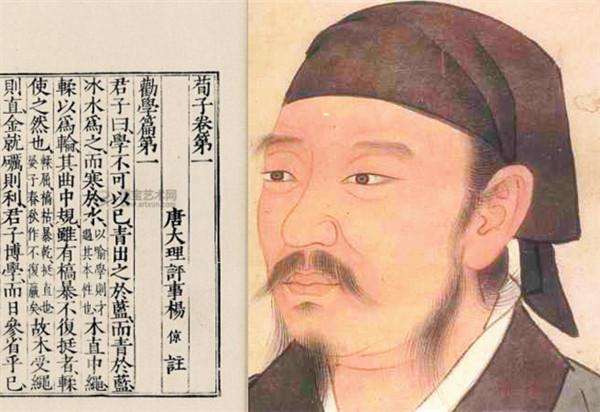 荀子卷第一
唐大理評事楊倞註
勸學篇第一
君子曰學不可以已青出之於藍而青於藍
冰水爲之而寒於水以喻學則才過其本性也木直中繩
輮以爲輪其曲中規雖有槁暴不復挺者輮
使之然也輮屈槁枯暴乾挺直也晏子春秋作不復贏矣故木受繩
則直金就礪則利君子博學而日參省乎己
艺术网